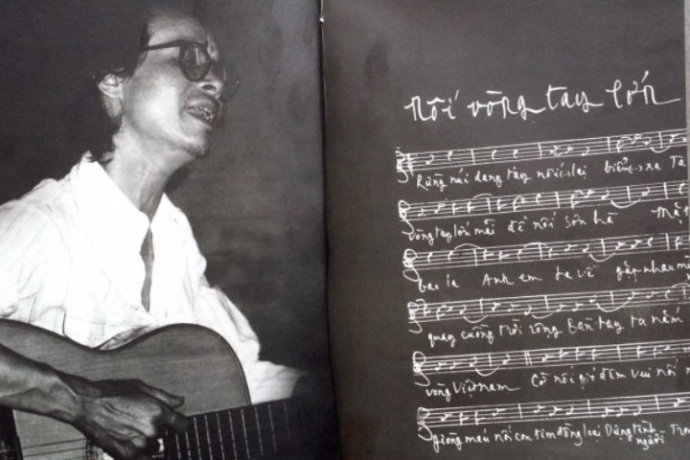 nối vòng tay lớn
Rừng núi dang tay nối lại biển xa Ta
vòng tay lớn mãi để nối sơn hà Mặt
bao la Anh em ta về gặp nhau
quay cuồng trời rộng Bàn tay ta nắm
vòng Việt nam Cờ nối gió đêm vui nối
giòng máu nối con tim đồng loại Dựng tình người Tron